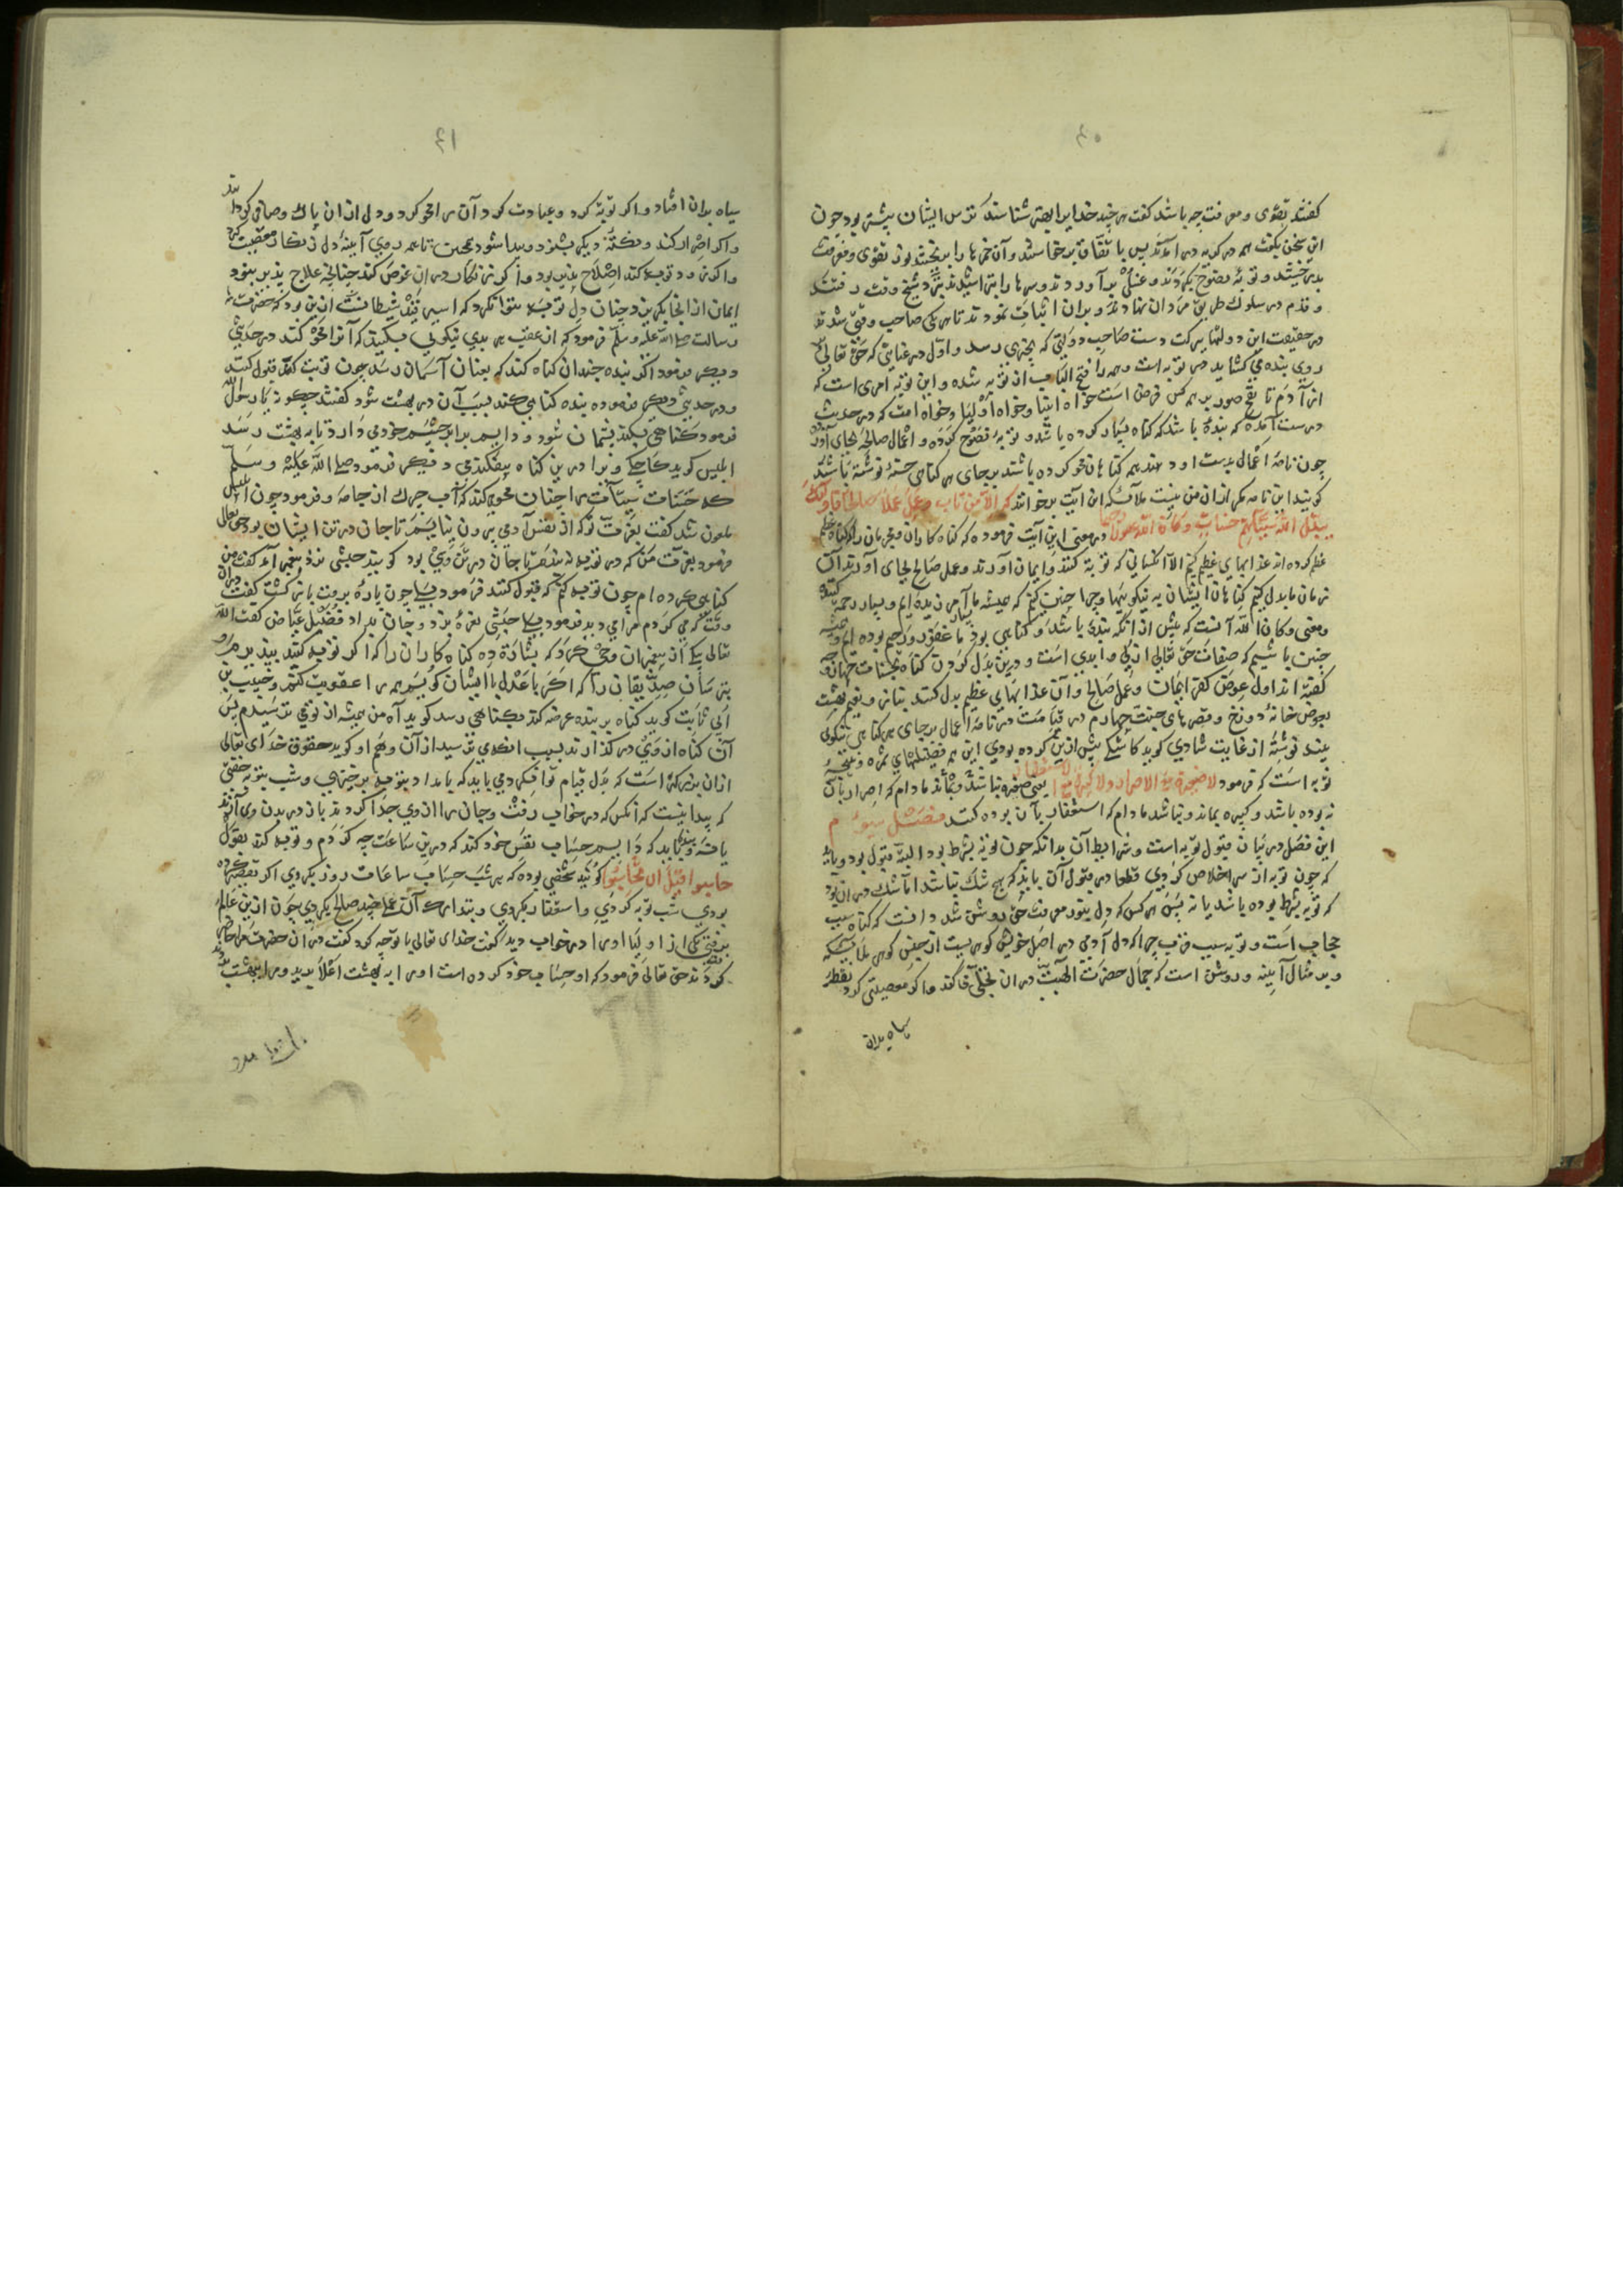 ٤٠
کفتند تقوی و معرفت چه باشد کفت هر چند خدایرا بهتر شناسند ترس ایشان بیشتر بود چون
این سخن بکفت همه در کریه در آمدند پس باتفاق برخاستند و آن خمرها را بریختند نور تقوی و معرفت
و قدم در سلوک طریق مردان نهادند و بران اثبات نمودند تا هر یکی صاحب وقتی شدند
در حقیقت این دولتها ببرکت دست صاحب دولتی که بچیزی رسد و اول در عنایتی که حق تعالی
روی بنده می کشاید در توبه است و همه را فتح الباب از توبه شده و این توبه امری است که
از آدم تا نفخ صور بر همه کس فرض است خواه انبیا و خواه اولیا و خواه امت که در حدیث
درست آمده که بنده باشد که کناه بسیار کرده باشد و توبه نصوح کرده و اعمال صالحه بجای آورد
چون نامه اعمال بدست او دهند همه کناهان محو کرده باشند بر جای هر کناهی حسنه نوشته باشند
کویند این نامه مکر ازان من نیست ملائکه این آیت برخوانند که الا من تاب و عمل عملا صالحا فاولئک
یبدل الله سیئاتهم حسنات و کان الله غفورا رحیما در معنی این آیت فرموده که کناه کاران و مجرمان را که کناه عظیم
عظیم کرده اند عذابهای عظیم کنم الا آنکسانی که توبه کنند و ایمان آورند و عمل صالح بجای آورند آن
زمان ما بدل کنیم کناهان ایشان به نیکوییها و چرا چنین کنیم که همیشه ما آمرزیده ایم و بسیار رحمت کننده
و معنی و کان الله آنست که پیش از آنکه بنده باشد و کناهی بود ما غفور و رحیم بوده ایم و همیشه
چنین باشیم که صفات حق تعالی ازلی و ابدی است و درین بدل کردن کناه بحسنات چهار وجه
کفته اند اول عوض کفر ایمان و عمل صالح و آن عذابهای عظیم بدل کند بناز و نعیم بهشت
بعوض خانه دوزخ و قصرهای جنت چهارم در قیامت در نامه اعمال بر جای هر کناهی نیکویی
بیند نوشته از غایت شادی کوید کاشکی بیش ازین کرده بودی این همه فضیلتهای ثمره و نتیجه
توبه است که فرمود لا صغیرة مع الاصرار و لا کبیرة مع الاستغفار یعنی صغیره نباشد و بماند مادام که اصرار بآن
نبوده باشد و کبیره بماند و نباشد مادام که استغفار بآن بوده کند فصل سیوم
این فصل در بیان قبول توبه است و شرایط آن بدانکه چون توبه بشرط بود البته قبول بود و باید
که چون توبه از سر اخلاص کردی قطعا در قبول آن باید که هیچ شک نباشد اما شک در آن بود
که توبه بشرط بوده باشد یا نه پس هر کس که دل بنور معرفت حق روشن شد دانست که کناه سبب
حجاب است و توبه سبب قرب چرا که دل آدمی در اصل خویش کوهریست از جنس کوهر ملائکه
و بر مثال آیینه و روشن است که جمال حضرت الهیت در آن تجلی کند و اکر معصیتی کرد نقطه
سیاه بران
٤١
سیاه بران افتاد و اکر توبه کرد و عبادت کرد آن را محو کرد و دل ازان پاک و صافی کرداند
و اکر اصرار کند و نکته دیکر بشزود و پیدا شود همچنین تا همه روی آیینه دل زنکار معصیت کیرد
و اکر زود توبه کند اصلاح پذیر بود و اکر نه زنکار در آن غوص کند چنانچه علاج پذیر نبود
رسالت صلی الله علیه وسلم فرمود که از عقب هر بدی نیکویی بکنید که آنرا محو کند در حدیثی
دیکر فرمود اکر بنده چندان کناه کند که بعنان آسمان رسد چون توبت کند قبول کنند
و در حدیثی دیکر فرموده بنده کناهی کند بسبب آن در بهشت شود کفتند چکونه یا رسول الله
فرمود کناهی بکند پشیمان شود و دایم برابر چشم خود می دارد تا به بهشت رسد
ابلیس کوید کاجکی ویرا درین کناه نیفکندمی و دیکر فرمود صلی الله علیه و سلم
که حسنات سیئات را چنان محو کند که آب چرک از جامه و فرمود چون ابلیس
ملعون شد کفت بعزت تو که از نفس آدمی بیرون نیایم تا جان در تن ایشان بود حق تعالی
فرمود بعزت من که در توبه نه بندم تا جان در تن وی بود کویند حبشی نزد پیغمبر آمد کفت من
کناهی کرده ام چون توبه کنم که قبول کنند فرمود بلی چون پاره برفت باز کشت کفت دران
وقت که می کردم مرا می دید فرمود بلی حبشی نعره بزد و جان بداد فضیل عیاض کفت الله
تعالی بیکی از پیغمبران وحی کرد که بشارة ده کناه کاران را که اکر توبه کنند بپذیرم و
بترسان صدیقان را که اکر با عدل با ایشان کویم همه را عقوبت کنم و حبیب بن
ابی ثابت کوید کناه بر بنده عرضه کنند بکناهی رسد کوید آه من همیشه از تو می ترسیدم پس
آن کناه از وی در کذارند بسبب آنکه می ترسید از آن و هم او کوید حقوق خدای تعالی
ازان بزرکتر است که بدل قیام توانی کرد می باید که بامداد بتوبه برخیزی و شب بتوبه خفتی
که پیدا نیست که آنکس که در خواب رفت و جان را از وی جدا کردند باز در بدن وی آرند
یا نه و بباید که دایم حساب نفس خود کند که درین ساعت چه کردم و توبه کند بقول
حاسبوا قبل ان تحاسبوا کویند شخصی بوده که هر شب حساب ساعات روز بکردی اکر تقصیری کرده
بودی شب توبه کردی و استغفار بکردی و بتدارک آن عملی چند صالح بکردی چون ازین عالم
برفتی یکی از اولیا او را در خواب دید کفت خدای تعالی با تو چه کرد کفت در ان حضرت مرا حاضر
کردند حق تعالی فرمود که او حساب خود کرده است او را به بهشت اعلا برید و مرا ببهشت بردند